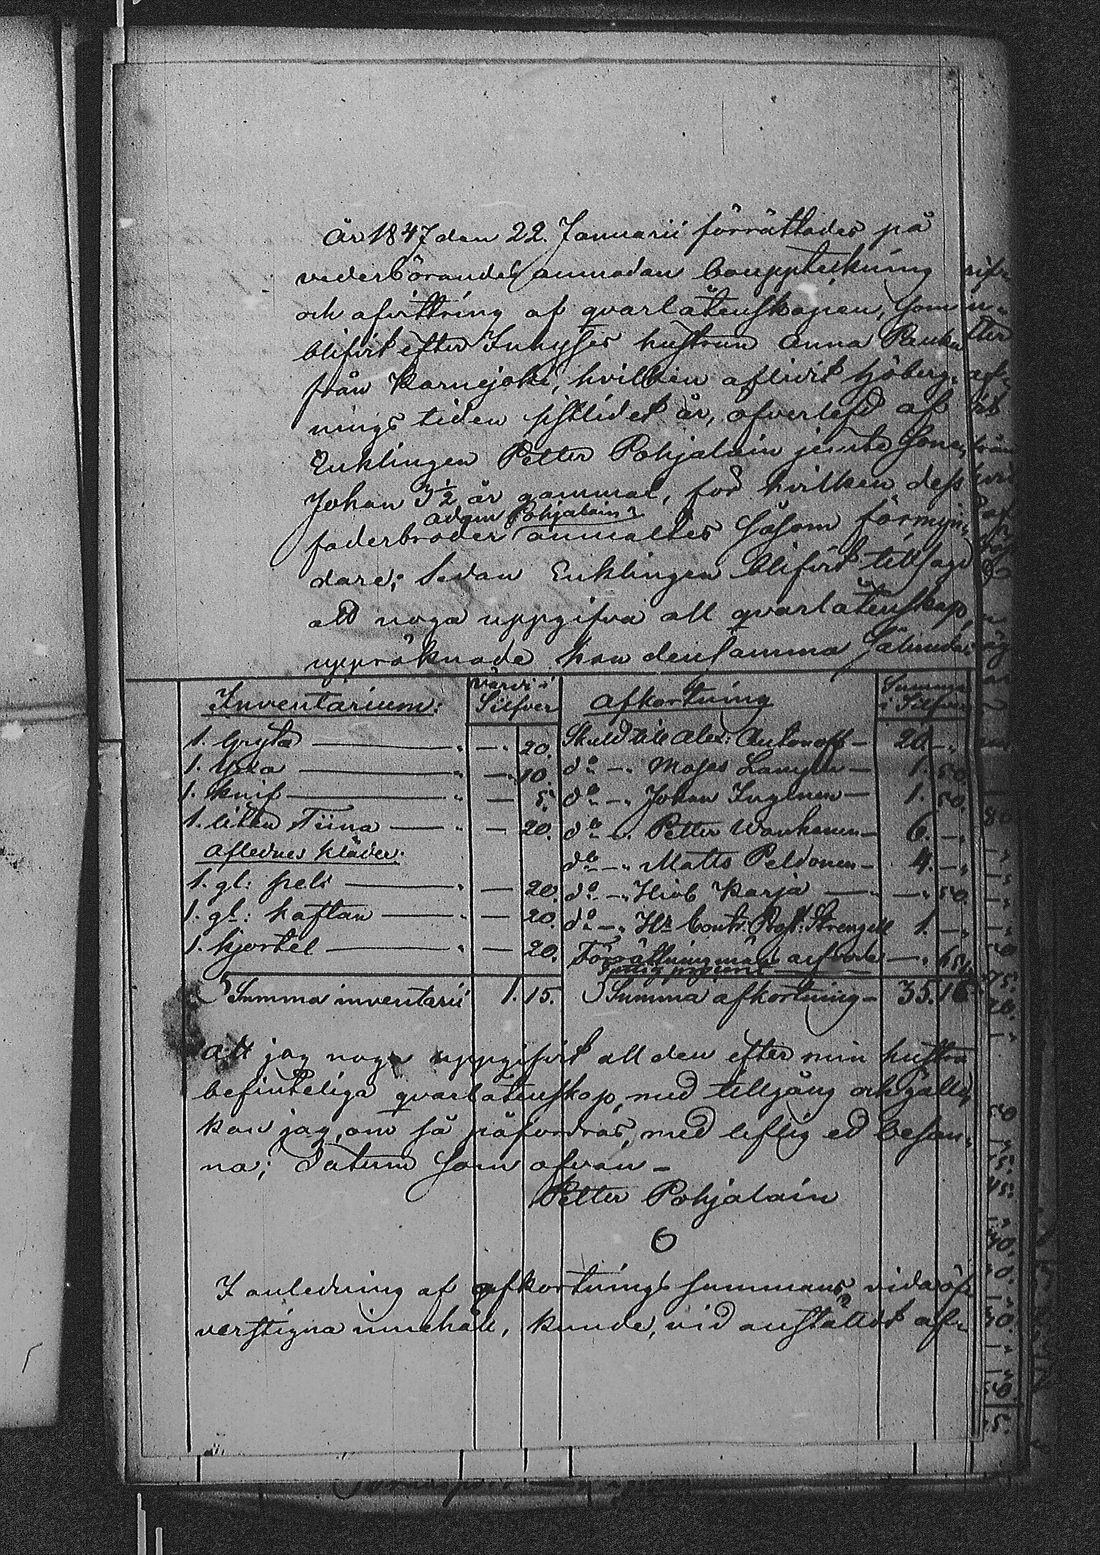 År 1847 den 22. Januarii förrättades på
vederbörandes anmodan bouppteckning
och afvittring af qvarlåtenskapen, som
blifvit efter Inhyses hustrun Anna
från Karnejoki, hvilken aflidit höberg-
nings tiden sistlidet år, öfverlefd af
Enklingen Petter Pohjalain jemte Sonen
Johan 3½ år gammal, för hvilken dess
Adam Pohjalain
faderbroder anmältes såsom förmyn-
dare; Sedan Enklingen blifvit tillsagd
att noga uppgifva all qvarlåtenskap,
uppräknade han densamma Sålunda:
Inventarium: värde i Silfver Afkortning Summa i Silfver
1. Gryta — „ — 20. Skuld till Alex: Antonoff — 20. — „
1. Yxa — „ — 10. do — „ Moses — 1. 50.
1. Knif — „ — 5. do — „ Johan Inginen — 1. 50.
1. liten Tiina — „ — 20. do — „ Petter Wanhanen — 6. — „
Aflednes kläder: do — „ Matts Peldonen — 4. — „
1. gl: pels — „ — 20. do — „ Hiob Karja — „ 50.
1. gl: kaftan — „ — 20. do — „ Hr Contr. Strengell 1. — „
1. kjortel — „ — 20. Förrättningsmäns arfvode —
Summa inventarii 1. 15. Summa afkortning — 35. 16
Att jag noga uppgifvit all den efter min hustru
befinteliga qvarlåtenskap, med tillgång och gäld,
kan jag, om så påfordras, med liflig ed besan-
na; Datum som ofvan —
Petter Pohjalain
I anledning af afkortnings summans vida öf-
verstigna innehåll, kunde, vid anstäldt af-